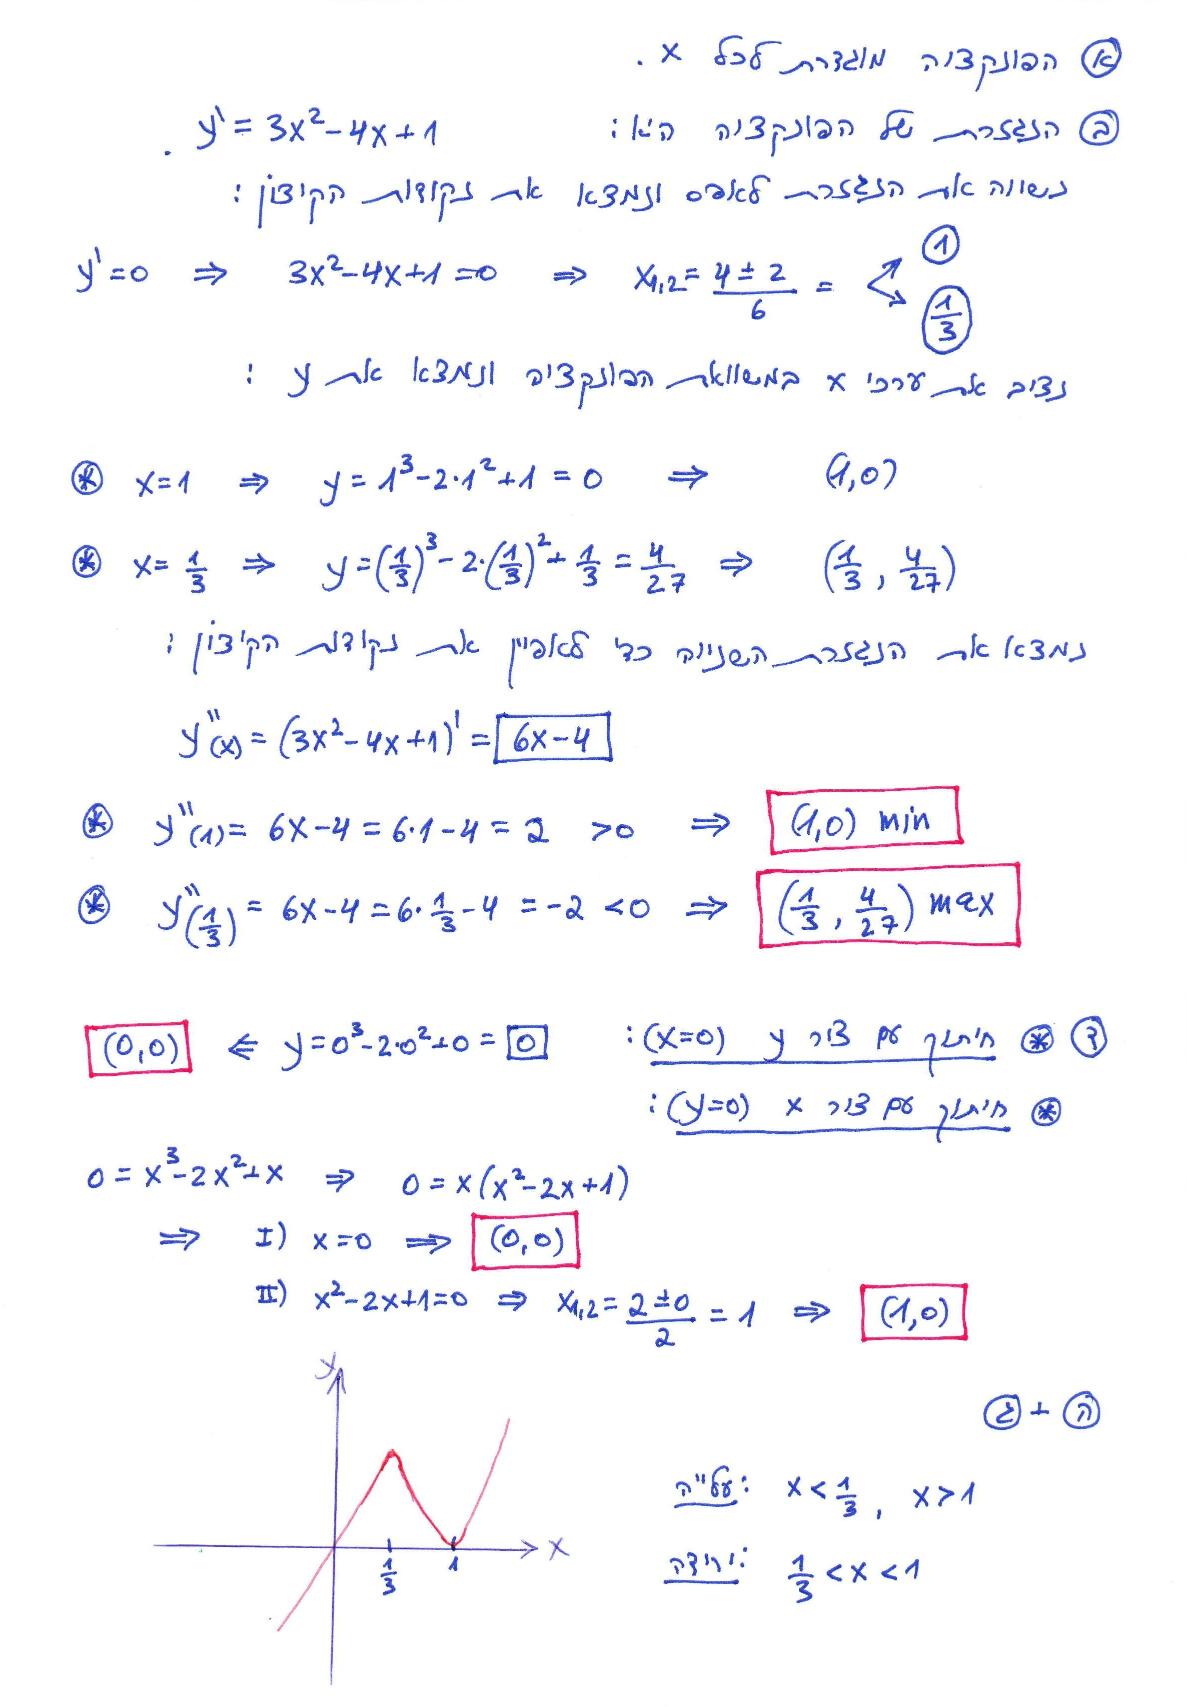 א הפונקציה מוגדרת לכל x.
ב הנגזרת של הפונקציה היא: y' = 3x² - 4x + 1 .
נשווה את הנגזרת לאפס ונמצא את נקודות הקיצון:
y' = 0 ⇒ 3x² - 4x + 1 = 0 ⇒ x₁,₂ = (4 ± 2)/6 = 1, 1/3
נציב את ערכי x במשוואת הפונקציה ונמצא את y:
* x = 1 ⇒ y = 1³ - 2·1² + 1 = 0 ⇒ (1,0)
* x = 1/3 ⇒ y = (1/3)³ - 2·(1/3)² + 1/3 = 4/27 ⇒ (1/3, 4/27)
נמצא את הנגזרת השנייה כדי לאפיין את נקודות הקיצון:
y''(x) = (3x² - 4x + 1)' = 6x - 4
* y''(1) = 6x - 4 = 6·1 - 4 = 2 > 0 ⇒ (1,0) min
* y''(1/3) = 6x - 4 = 6·1/3 - 4 = -2 < 0 ⇒ (1/3, 4/27) max
ד * חיתוך עם ציר y (x=0): y = 0³ - 2·0² + 0 = 0 ⇐ (0,0)
* חיתוך עם ציר x (y=0):
0 = x³ - 2x² + x ⇒ 0 = x(x² - 2x + 1)
⇒ I) x = 0 ⇒ (0,0)
II) x² - 2x + 1 = 0 ⇒ x₁,₂ = (2 ± 0)/2 = 1 ⇒ (1,0)
ה + ג
עלייה: x < 1/3, x > 1
ירידה: 1/3 < x < 1
y
x
1/3
1